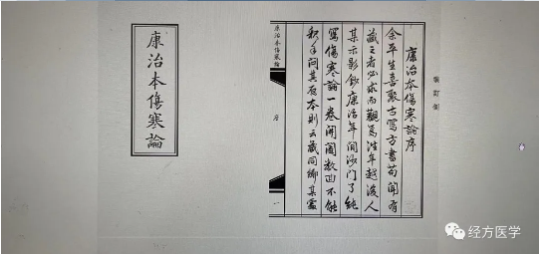 康治本傷寒論序
余平生喜聚古寫方書苟聞有
藏之者必求而觀焉往年越後人
某示影鈔康治年間沙門了純
寫傷寒論一卷開闔數四不能
釈手問其原本則云藏同鄉某家
康治本傷寒論
序
康治本傷寒論
经方医学